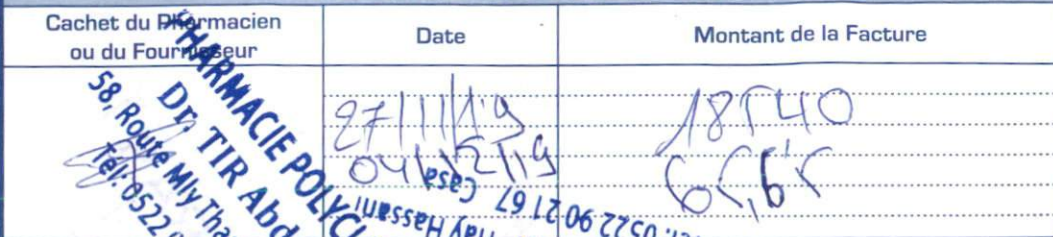 Cachet du Pharmacien
ou du Fournisseur
Date
Montant de la Facture
PHARMACIE POLYCL
Dr. TIR Abd
58, Route Mly Tha
Tél: 0522
27/11/19
04/12/19
Casa
lay Hassani
0522 90 21 67
65,65